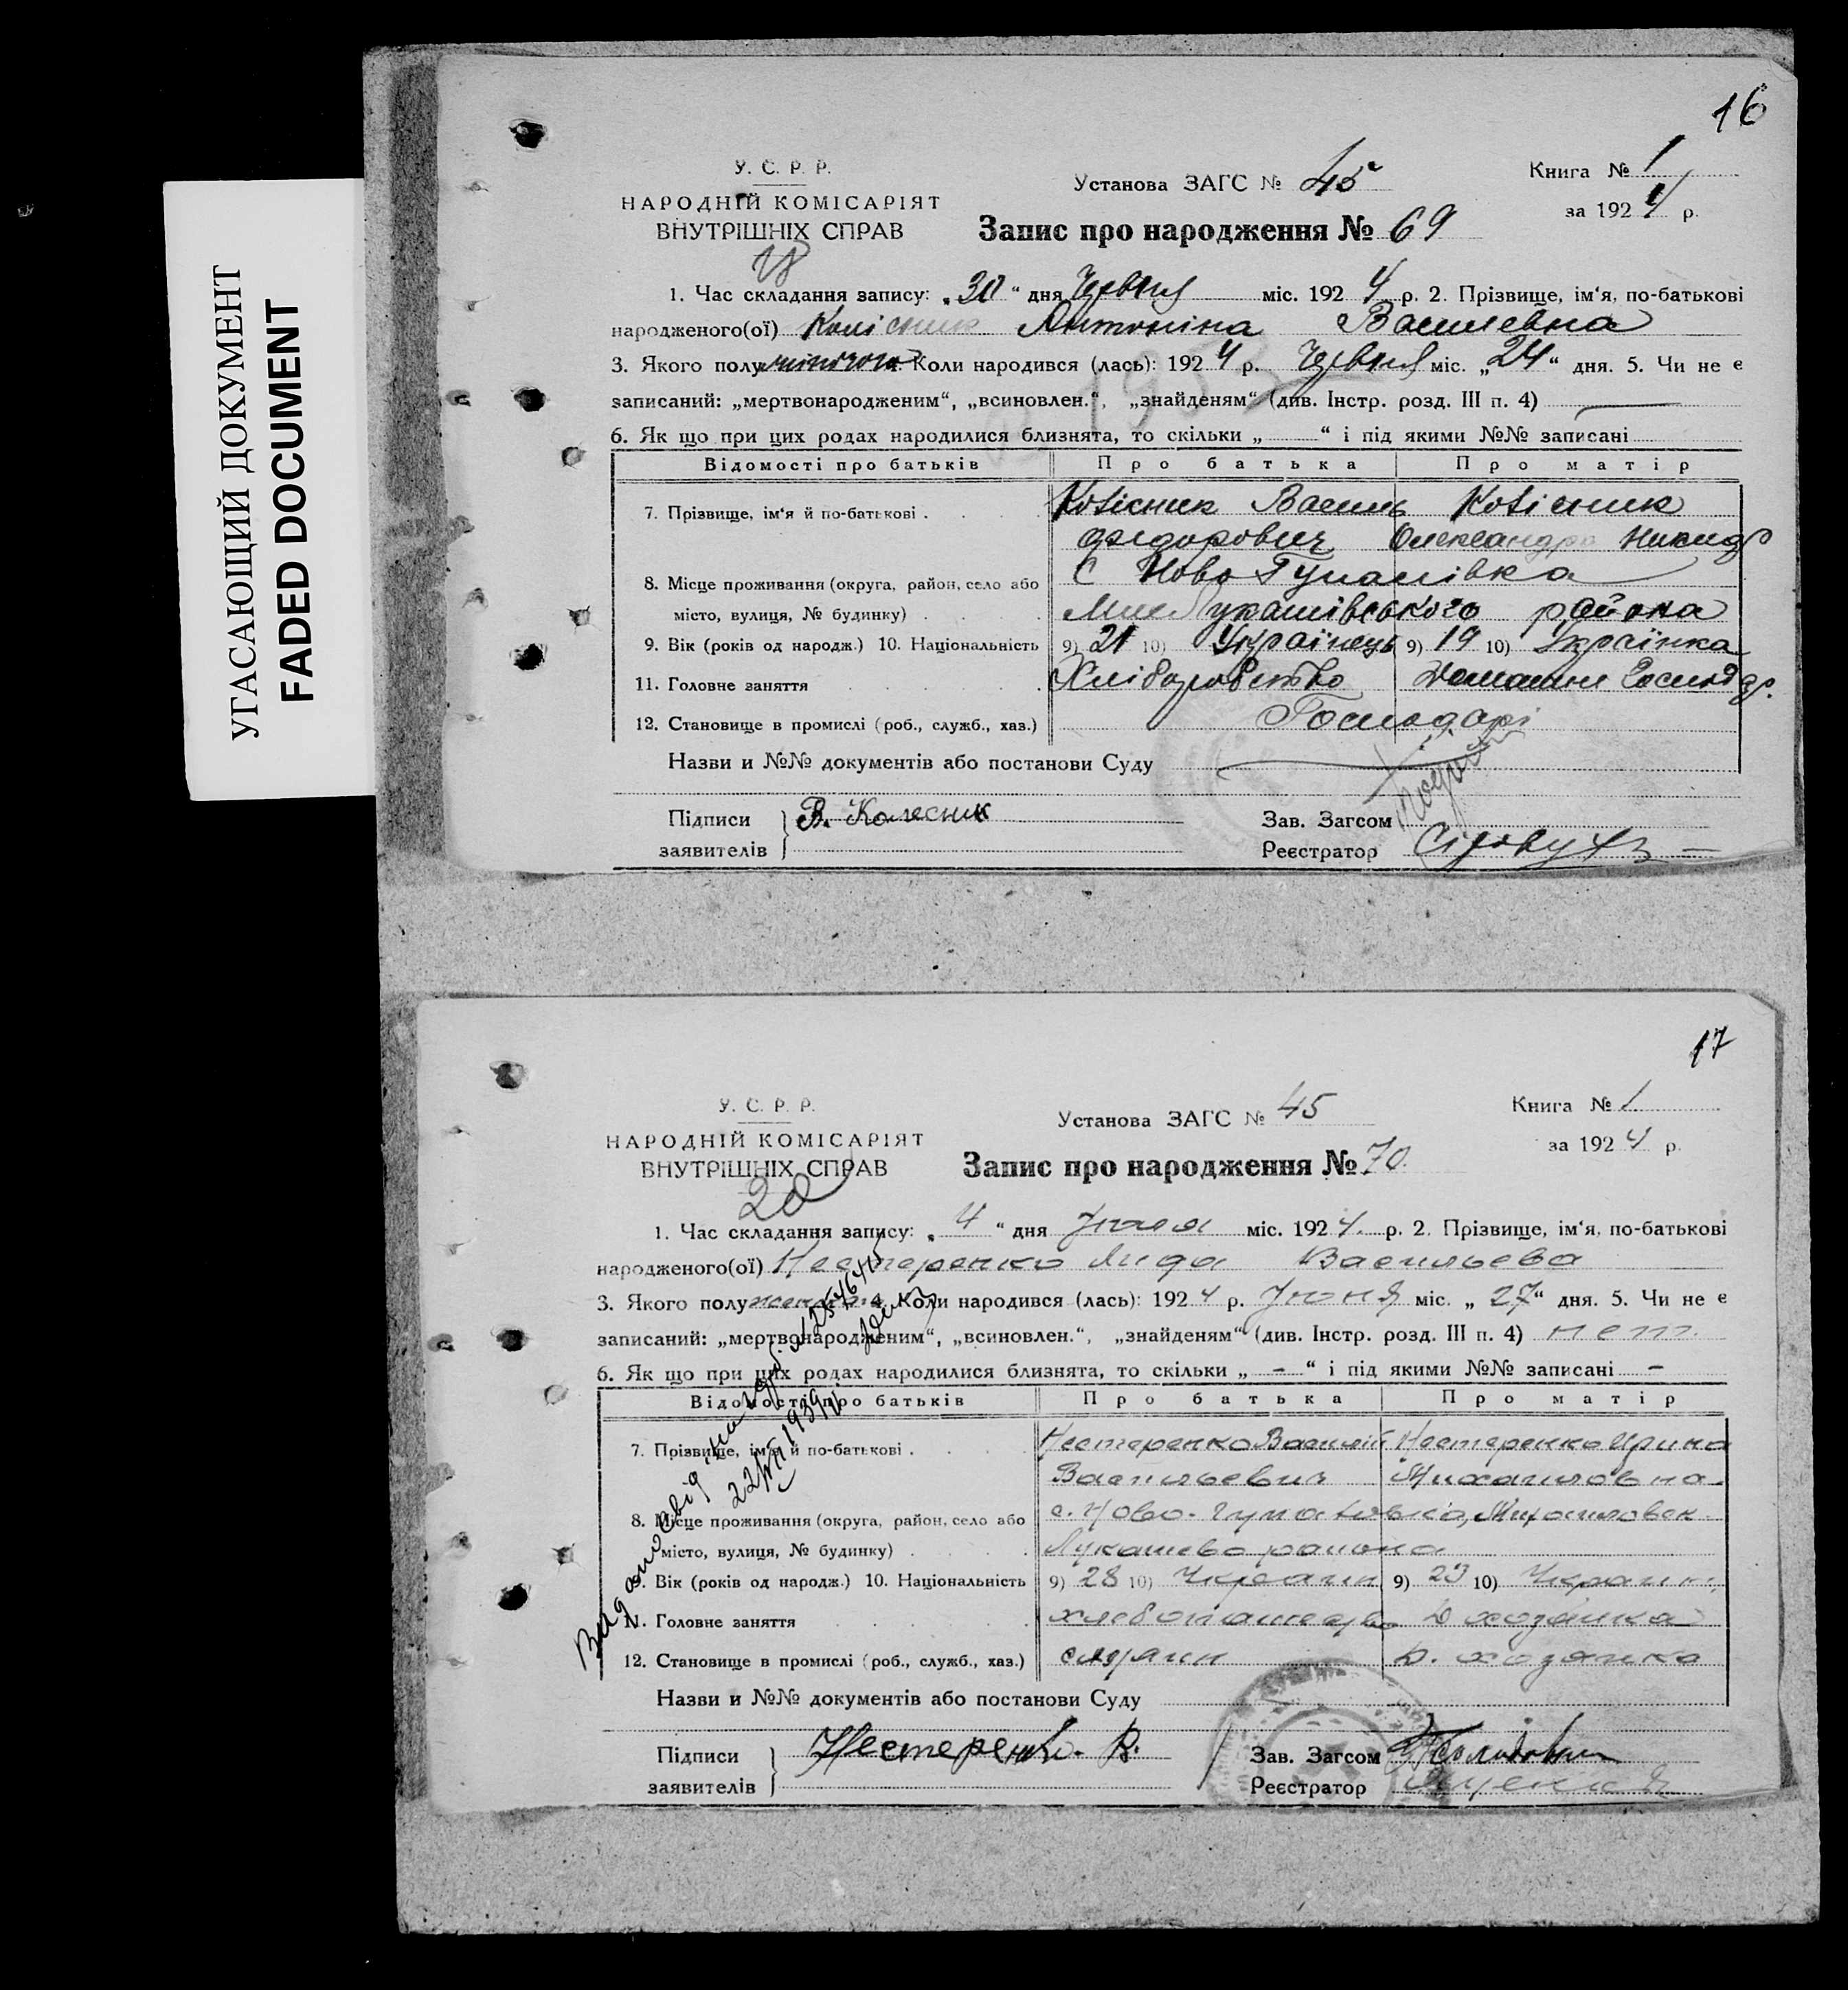 УГАСАЮЩИЙ ДОКУМЕНТ
FADED DOCUMENT
16
У. С. Р. Р.
НАРОДНІЙ КОМІСАРІЯТ
ВНУТРІШНІХ СПРАВ
Установа ЗАГС № 45
Книга № 1
за 1924 р.
Запис про народження № 69
1. Час складання запису: „30“ дня Червня міс. 1924 р. 2. Прізвище, ім‘я, по-батькові
народженого(ої) Колісник Антоніна Василевна
3. Якого полу жіночого 4. Коли народився (лась): 1924 р. Червня міс. „24“ дня. 5. Чи не є
записаний: „мертвонародженим“, „всиновлен.“, „знайденям“ (див. Інстр. розд. III п. 4) —
6. Як що при цих родах народилися близнята, то скільки „ “ і під якими №№ записані
Відомості про батьків Про батька Про матір
7. Прізвище, ім‘я й по-батькові . Колісник Василь Колісник
Федорович Олександра Никид
8. Місце проживання (округа, район, село або С Ново Гупалівка
місто, вулиця, № будинку) . Мих Лукашівського района
9. Вік (років од народж.) 10. Національність 9) 21 10) Українець 9) 19 10) Українка
11. Головне заняття Хліборобство Домашне Господ
12. Становище в промислі (роб., служб., хаз.) Господарі
Назви и №№ документів або постанови Суду
Підписи заявителів } В. Колесник
Зав. Загсом
Реєстратор
17
У. С. Р. Р.
НАРОДНІЙ КОМІСАРІЯТ
ВНУТРІШНІХ СПРАВ
Установа ЗАГС № 45
Книга № 1
за 1924 р.
Запис про народження № 70
20
1. Час складання запису: „4“ дня Июля міс. 1924 р. 2. Прізвище, ім‘я, по-батькові
народженого(ої) Нестеренко Лида Васильева
3. Якого полу 4. Коли народився (лась): 1924 р. Июня міс. „27“ дня. 5. Чи не є
записаний: „мертвонародженим“, „всиновлен.“, „знайденям“ (див. Інстр. розд. III п. 4) нет.
6. Як що при цих родах народилися близнята, то скільки „ - “ і під якими №№ записані -
Відомості про батьків Про батька Про матір
7. Прізвище, ім‘я й по-батькові . Нестеренко Василий Нестеренко Ирина
Васильевич Михайловна
8. Місце проживання (округа, район, село або с. Ново-Гупаловка, Михайловск
місто, вулиця, № будинку) . Лукашево района
9. Вік (років од народж.) 10. Національність 9) 28 10) Украин 9) 23 10) Украин
11. Головне заняття Д хозяйка
12. Становище в промислі (роб., служб., хаз.) Д. хозяйка
Назви и №№ документів або постанови Суду
Підписи заявителів } Нестеренко. В.
Зав. Загсом
Реєстратор
22/VII 1939